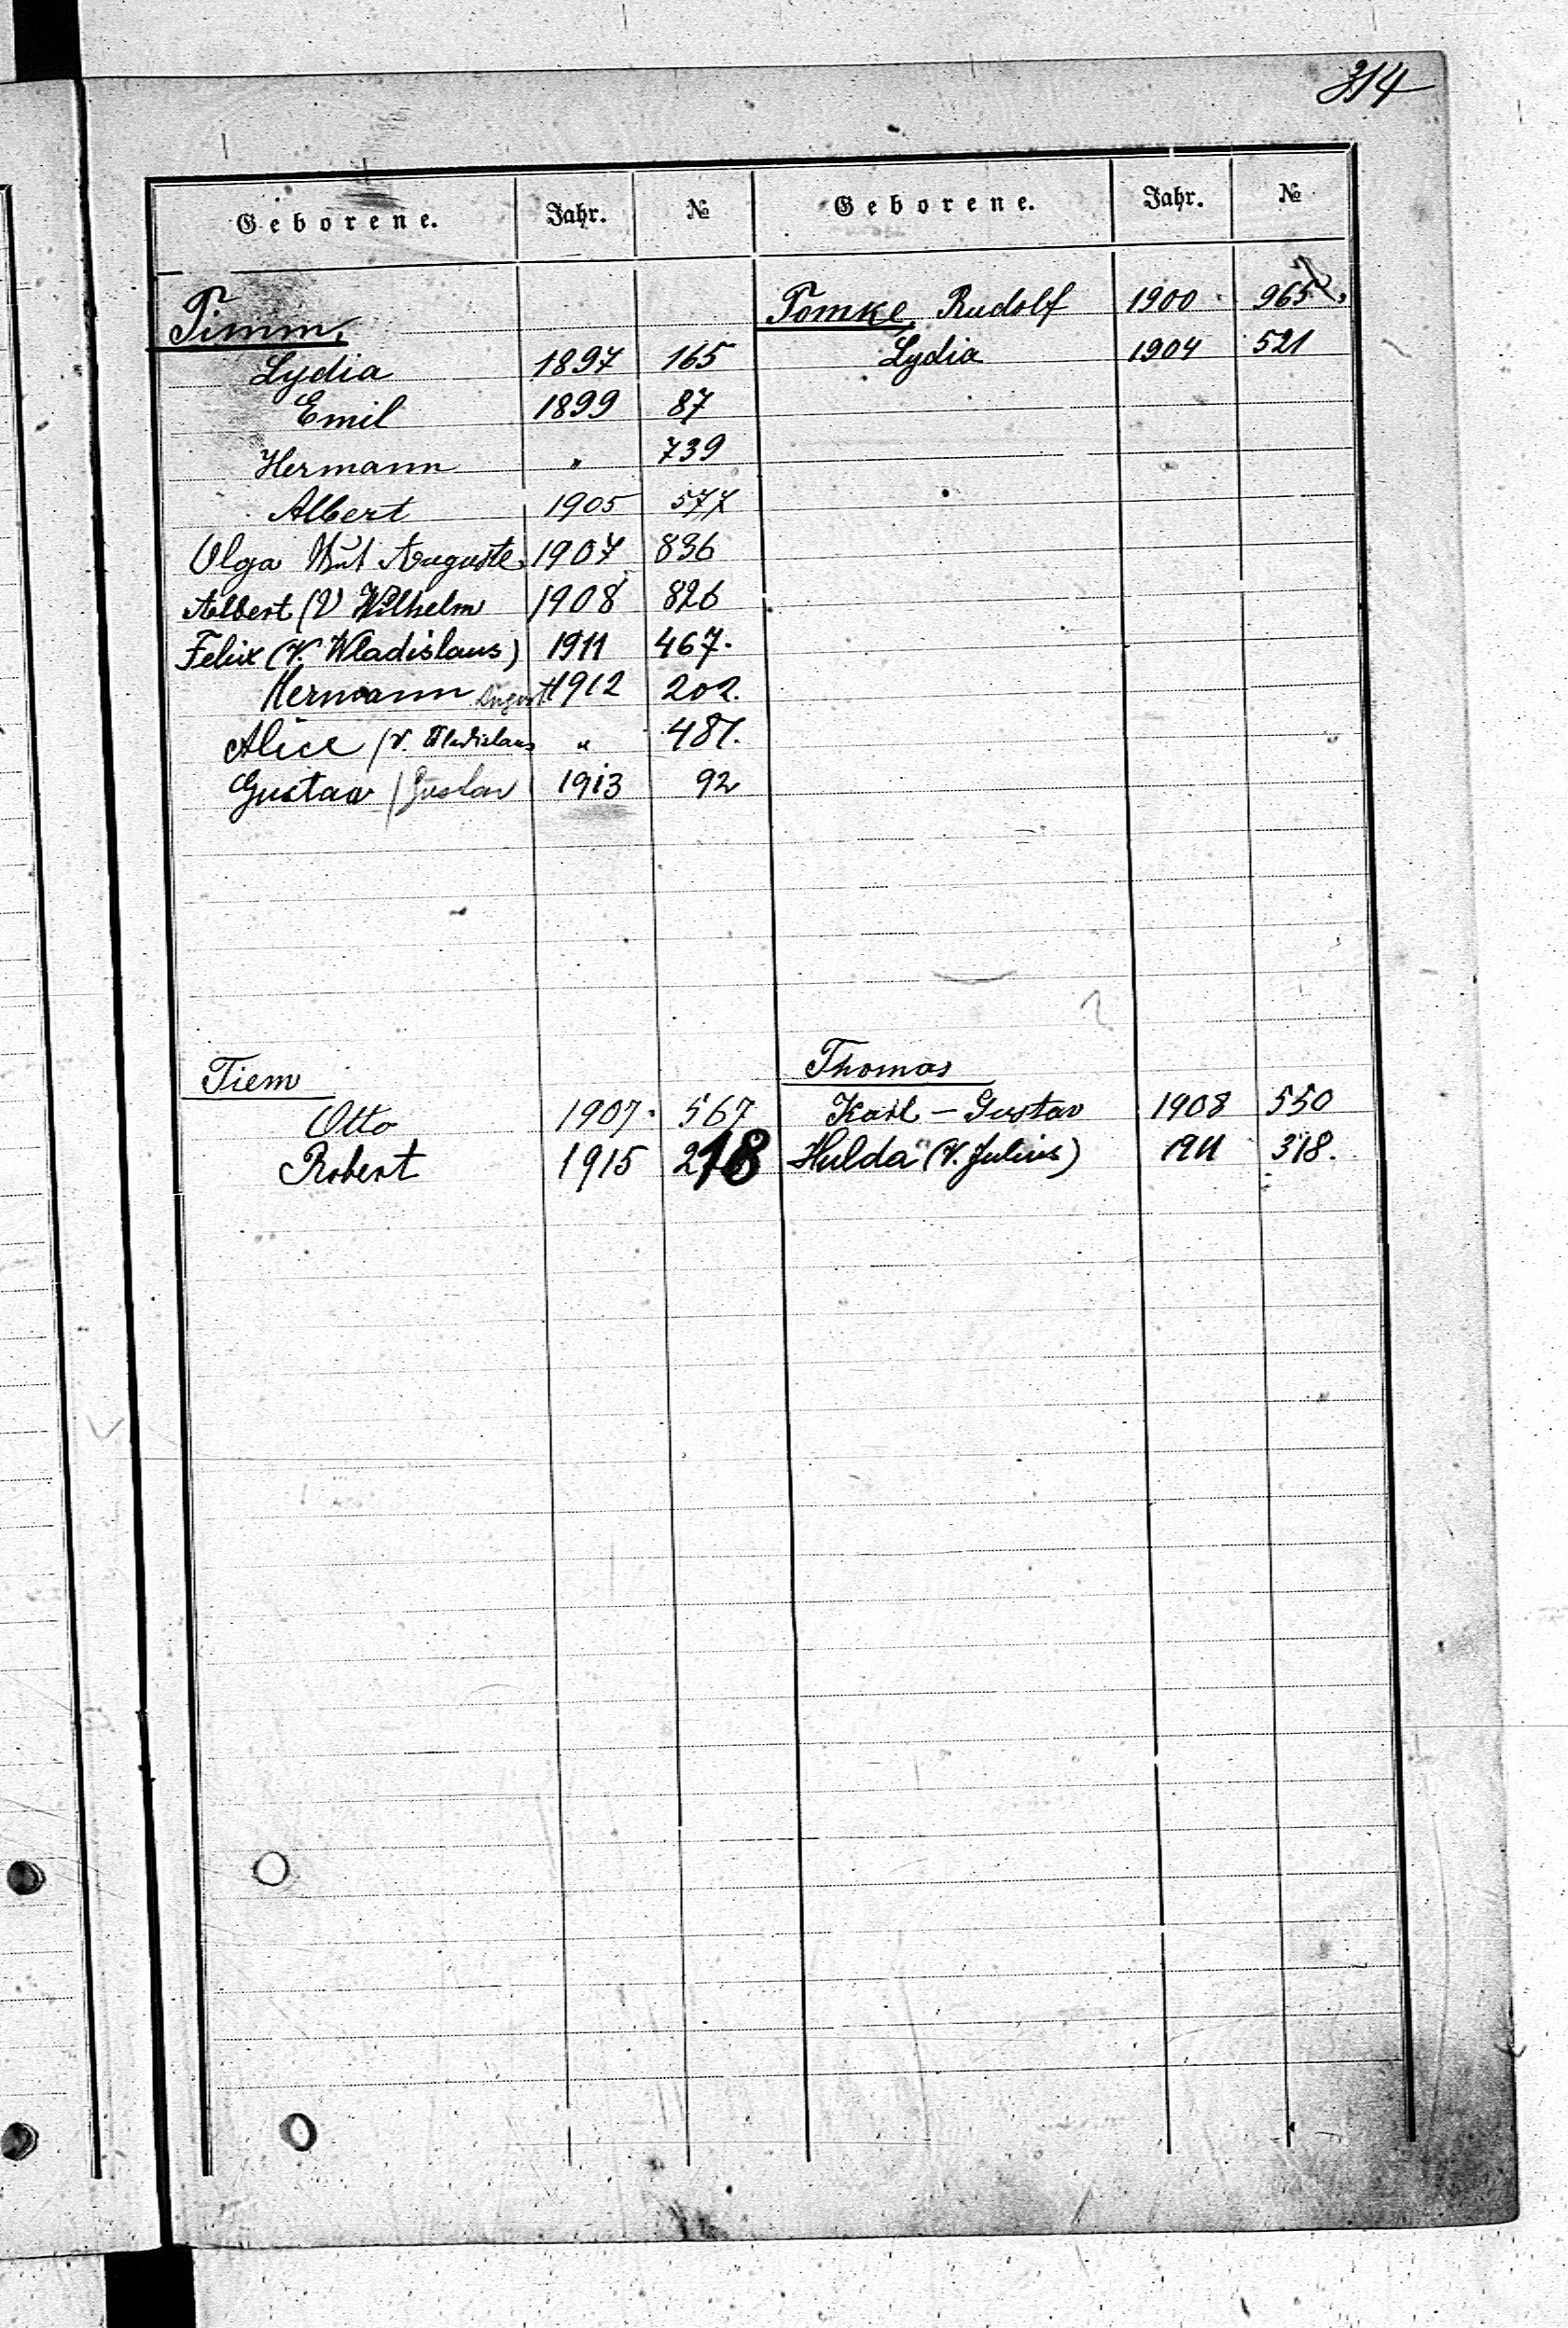 314
Geborene. Jahr. № Geborene. Jahr. №
Timm.
Lydia 1897 165
Emil 1899 87
Hermann " 739
Albert 1905 577
Olga Auguste 1907 836
Albert (V Wilhelm 1908 826
Felix (V. Wladislaus) 1911 467.
Hermann August 1912 202.
Alice (V. Wladislaus " 481.
Gustav (Gustav 1913 92
Tiem
Otto 1907. 567
Robert 1915 218
Tomke, Rudolf 1900 965
Lydia 1904 521
Thomas
Karl - Gustav 1908 550
Hulda (V. Julius) 1911 318.